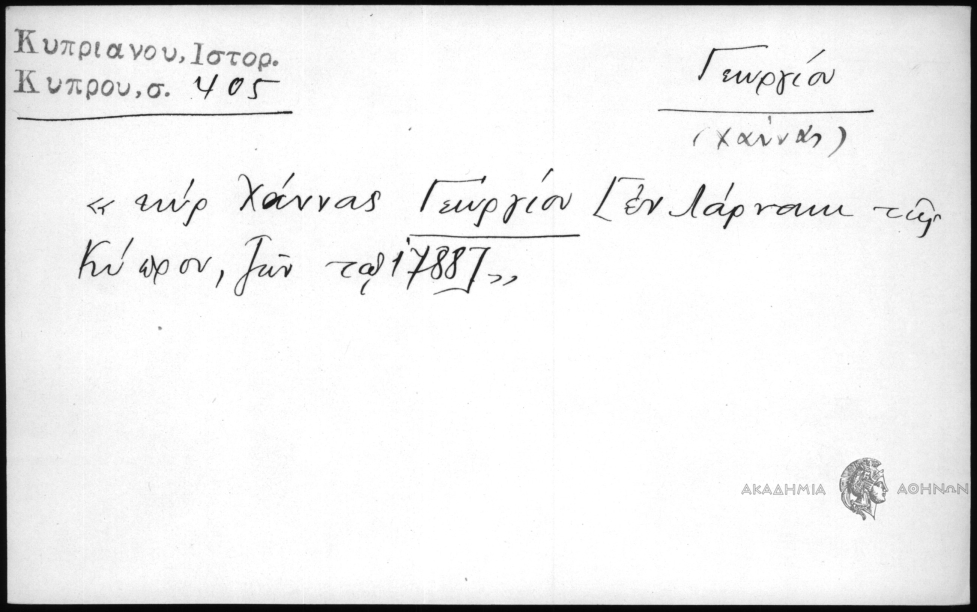 Κυπριανου, Ιστορ.
Κυπρου, σ. 405
Γεωργίου
(Χάννας)
« κύρ Χάννας Γεωργίου [ἐν Λάρνακι τῆς
Κύπρου, ζῶν τῷ 1788] »
ΑΚΑΔΗΜΙΑ ΑΘΗΝΩΝ